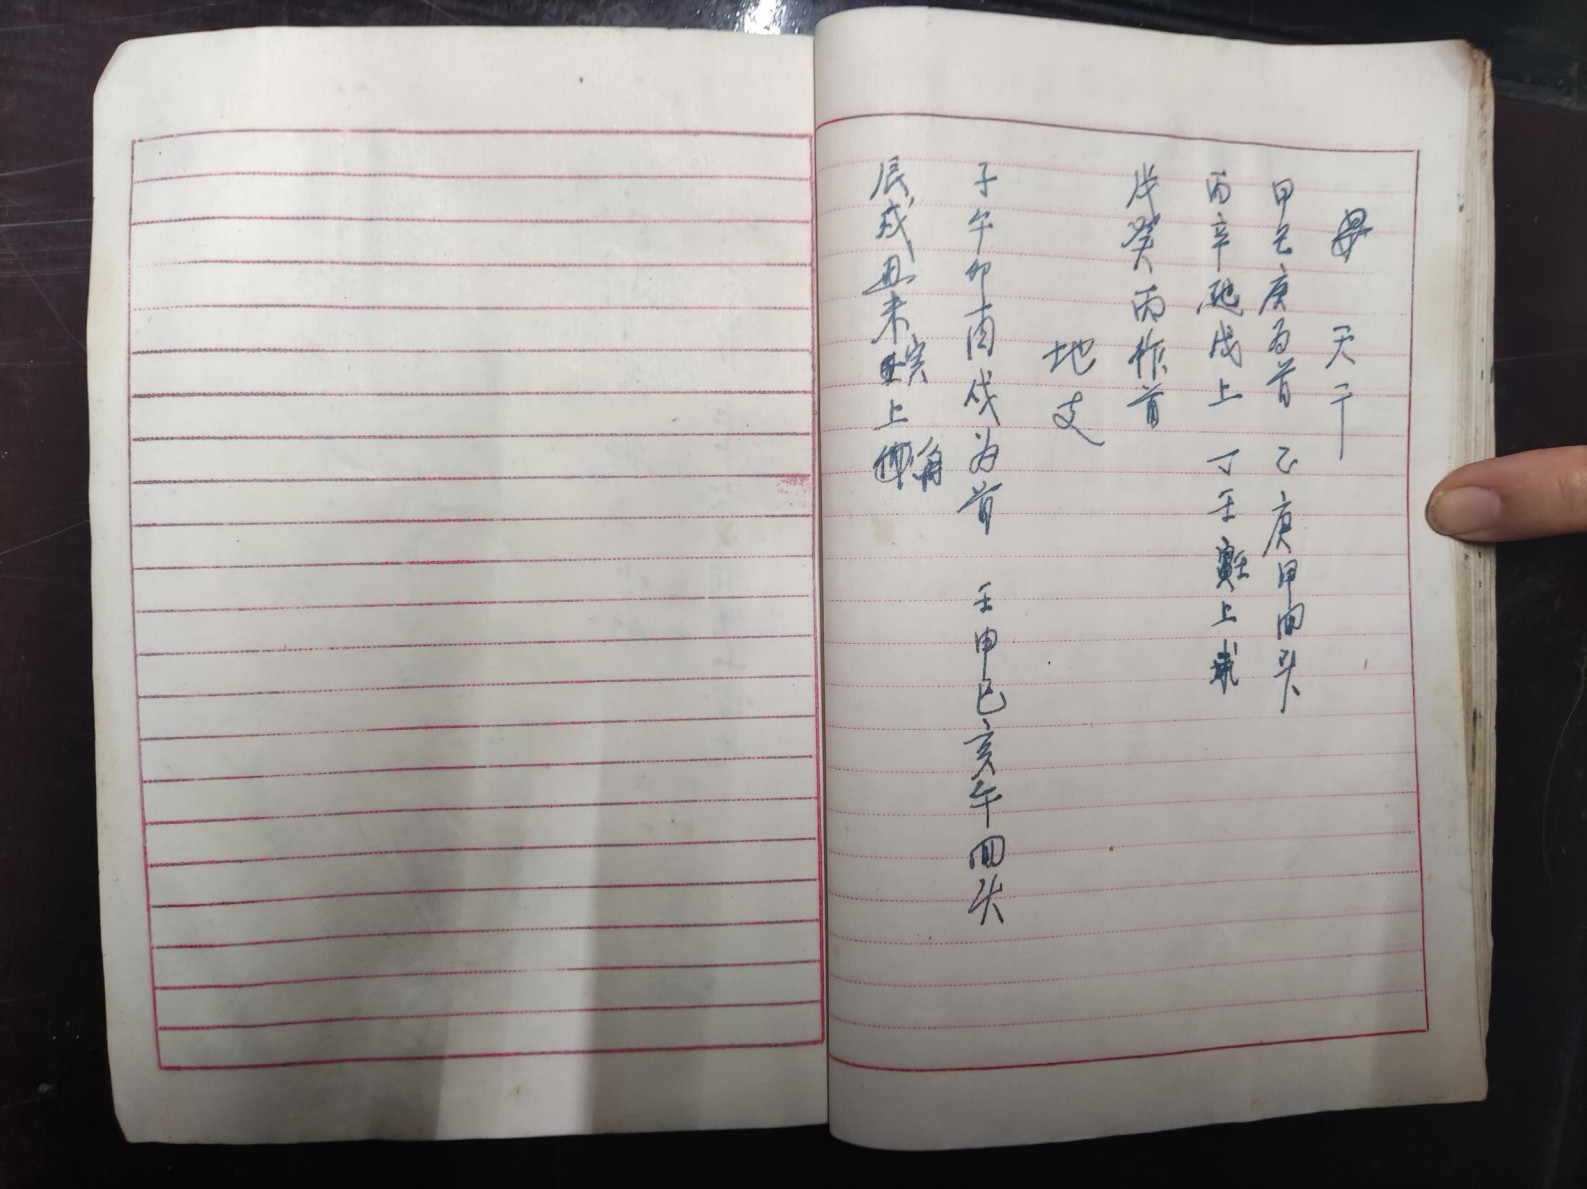 母 天干
甲己庚为首 乙庚甲回头
丙辛 戌上 丁壬 上
戊癸丙作首
地支
子午卯酉戌为首 壬申巳亥午回头
辰戌丑未寅上